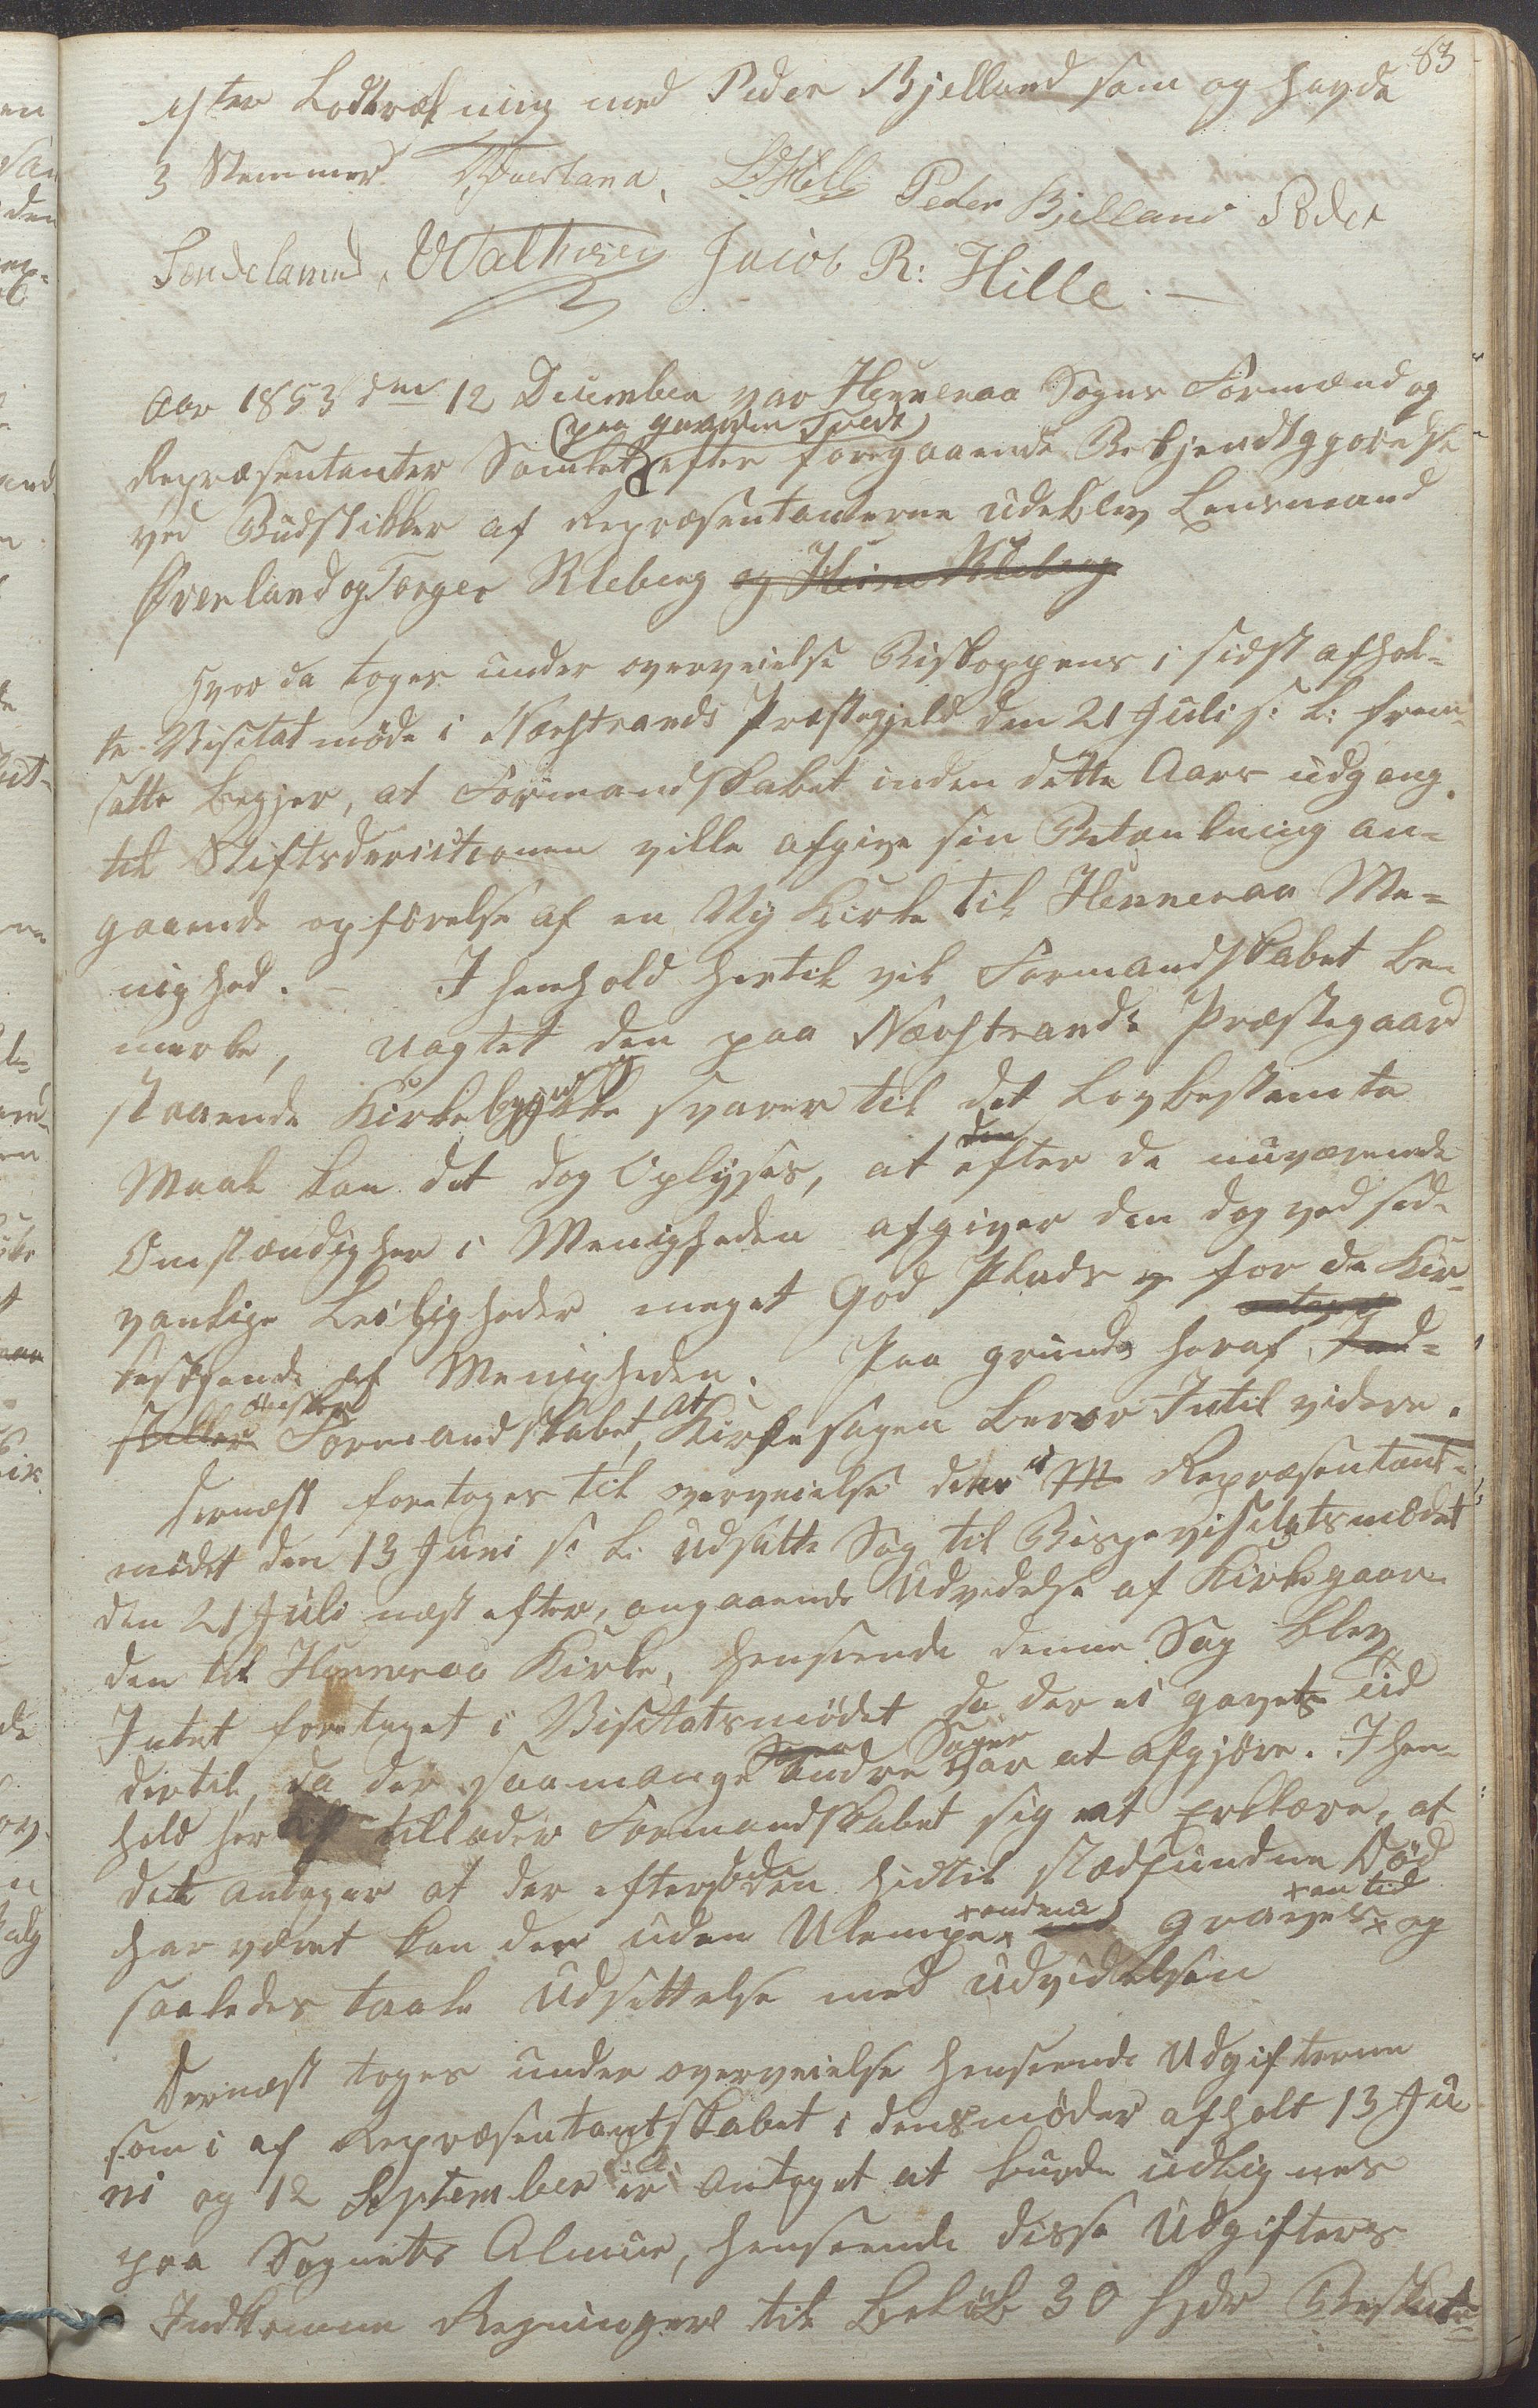 83
efter Lodtrækning med Peder Bjelland som og havde
3 Stemmer Øverland, LHille Peder Bjelland Peder
Søndelanend, Valhiesen Jacob R: Hille.
Aar 1853 den 12 December var Henneraa Sogns Formænd og
Repræsentanter Samlet (paa gaarden Tvedt) efter foregaaende Bekjendtgjørelse
ved Budstikker af Repræsentanterne udeblev Lensmand
Øverland og Torger Kleberg og Kleberg
Hvor da toges under overveielse Biskoppens i sidst afhol-
te Visitatmøde i Nerstrands Præstegjeld den 21 Juli s: L: frem-
satte begjer, at Formandskabet inden dette Aars udgang
til Stiftsdirectionen ville afgive sin Betænkning an-
gaaende opførelse af en Ny Kirke til Henneraa Me-
nighed. - I henhold hertil vil Formandskabet be-
merke, uagtet den paa Nerstrands Præstegaard
staaende Kirkebygning ikke svarer til det Lovbestemte
Maal kan det dog Oplyses, at den efter de nuværende
Omstændigher i Menigheden afgiver den dog ved sed-
vanlige Leiligheder meget God Plads for de Kir-
kesøgende af Menigheden. Paa grund heraf antager ind-
stiller ønsker Formandskabet, at Kirkesagen beroer Intil videre.
Dernæst foretoges til overveielse den i M Repræsentant-
mødet den 13 Juni s. L. Udsatte Sag til Bispevisitatsmødet
den 21 Juli næst efter, angaaende Udvidelse af Kirkegaar-
den til Henneraa Kirke, henseende denne Sag blev
Intet foretaget i Visitatsmødet da der ei gaves tid
dertil, da der saamange andre Sager var at afgjøre. I hen-
hold hertil tillader Formandskabet sig at Erklære, at
det antager at der efter den hidtil stædfundne Død
har været kan der uden Ulempe endnu graves en tid og
saaledes taale Udsettelse med udvidelsen
Dernæst toges under overveielse henseende Udgifterne
som i af Repræsentantskabet i dens møder afholt 13 Ju
ni og 12 September er antaget at burde udlignes
paa Sognets Almue, henseende disse Udgifters
Indkomne Regninger til Beløb 30 Spdr Beslut-